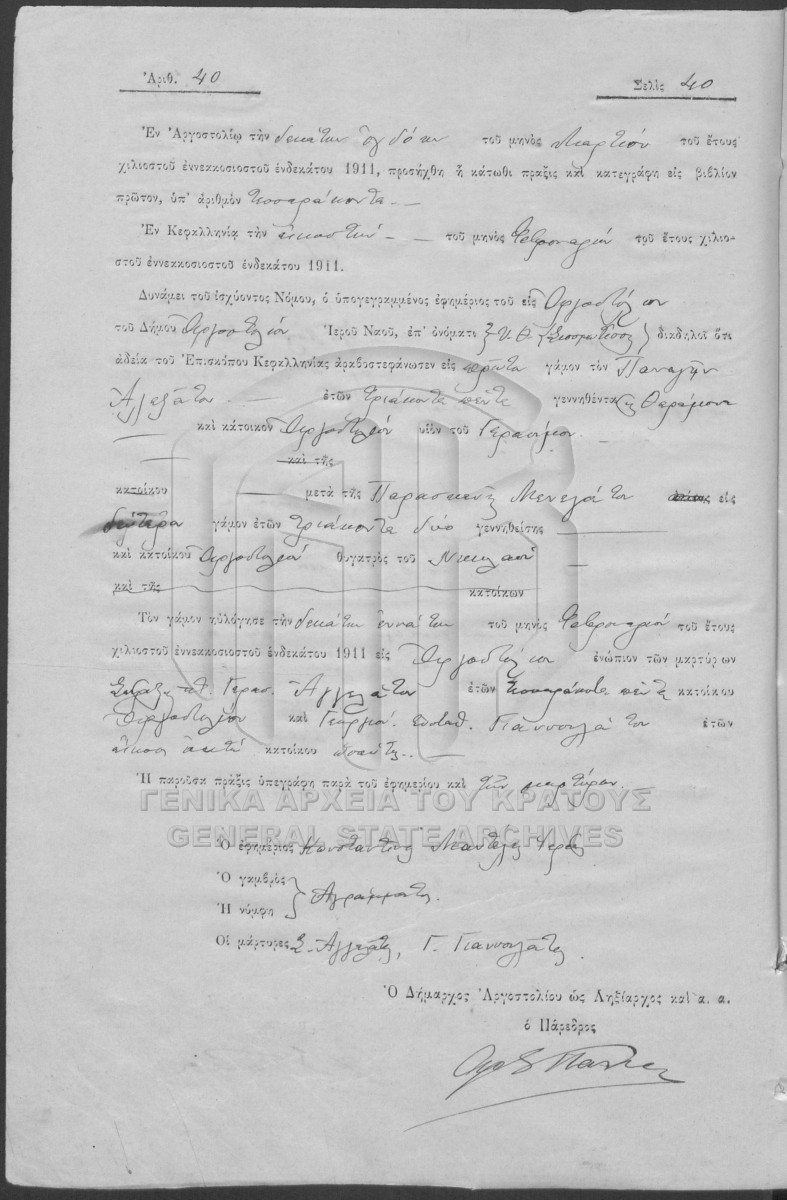 Ἀριθ. 40
Σελὶς 40
Ἐν Ἀργοστολίῳ τὴν δεκάτην ὀγδόην τοῦ μηνὸς Μαρτίου τοῦ ἔτους
χιλιοστοῦ ἐννεκκοσιοστοῦ ἑνδεκάτου 1911, προσήχθη ἡ κάτωθι πρᾶξις καὶ κατεγράφη εἰς βιβλίον
πρῶτον, ὑπ' ἀριθμὸν τεσσαράκοντα.
Ἐν Κεφαλληνίᾳ τὴν εἰκοστήν τοῦ μηνὸς Φεβρουαρίου τοῦ ἔτους χιλιο-
στοῦ ἐννεκκοσιοστοῦ ἑνδεκάτου 1911.
Δυνάμει τοῦ ἰσχύοντος Νόμου, ὁ ὑπογεγραμμένος ἐφημέριος τοῦ εἰς Ἀργοστόλιον
τοῦ Δήμου Ἀργοστολίου Ἱεροῦ Ναοῦ, ἐπ' ὀνόματι διαδηλοῖ ὅτι
ἀδείᾳ τοῦ Ἐπισκόπου Κεφαλληνίας ἀρραβοστεφάνωσεν εἰς πρῶτον γάμον τὸν Παναγῆν
Ἀγγελάτον ἐτῶν τριάκοντα πέντε γεννηθέντα
καὶ κάτοικον Ἀργοστολίου υἱὸν τοῦ Γερασίμου
καὶ τῆς
κατοίκου μετὰ τῆς Παρασκευῆς Μενεγάτου εἰς
δεύτερον γάμον ἐτῶν τριάκοντα δύο γεννηθείσης
καὶ κατοίκου Ἀργοστολίου θυγατρὸς τοῦ Νικολάου
καὶ τῆς κατοίκων
Τὸν γάμον ηὐλόγησε τὴν δεκάτην ἐννάτην τοῦ μηνὸς Φεβρουαρίου τοῦ ἔτους
χιλιοστοῦ ἐννεκκοσιοστοῦ ἑνδεκάτου 1911 εἰς Ἀργοστόλιον ἐνώπιον τῶν μαρτύρων
Γερασ. Ἀγγελάτου ἐτῶν τεσσαράκοντα πέντε κατοίκου
Ἀργοστολίου καὶ Γεωργίου Γιαννουλάτου ἐτῶν
εἴκοσι ὀκτώ κατοίκου
Ἡ παροῦσα πρᾶξις ὑπεγράφη παρὰ τοῦ ἐφημερίου καὶ τῶν μαρτύρων.
ΓΕΝΙΚΑ ΑΡΧΕΙΑ ΤΟΥ ΚΡΑΤΟΥΣ
GENERAL STATE ARCHIVES
Ὁ ἐφημέριος Κωνσταντῖνος
Ὁ γαμβρὸς
Ἡ νύμφη } Ἀγράμματοι.
Οἱ μάρτυρες Σ. Ἀγγελάτος, Γ. Γιαννουλάτος.
Ὁ Δήμαρχος Ἀργοστολίου ὡς Ληξίαρχος καὶ α. α.
ὁ Πάρεδρος